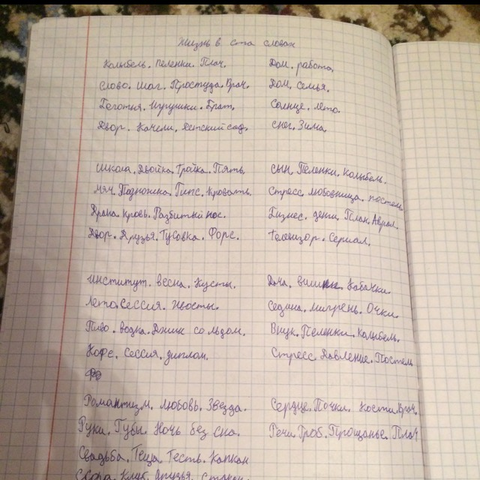 Жизнь в ста словах
Колыбель. Пеленки. Плач.
Слово. Шаг. Простуда. Врач.
Беготня. Игрушки. Брат.
Двор. Качели. Детский сад.
Школа. Двойка. Тройка. Пять.
Мяч. Подножка. Гипс. Кровать.
Драка. Кровь. Разбитый нос.
Двор. Друзья. Тусовка. Форс.
Институт. Весна. Кусты.
Лето. Сессия. Хвосты.
Пиво. Водка. Джин со льдом.
Кофе. Сессия. Диплом.
Романтизм. Любовь. Звезда.
Руки. Губы. Ночь без сна.
Свадьба. Теща. Тесть. Капкан
Ссора. Клуб. Друзья. Стакан.
Дом. работа.
Дом. Семья.
Солнце. Лето.
Снег. Зима.
Сын. Пеленки. Колыбель.
Стресс. любовница. постель.
Бизнес. деньги. План. Аврал.
Телевизор. Сериал.
Дача. вишни. Кабачки
Седина. мигрень. Очки.
Внук. Пеленки. Колыбель.
Стресс. Давление. Постель
Сердце. Почки. Кости. Врач.
Речи. Гроб. Прощанье. Плач.